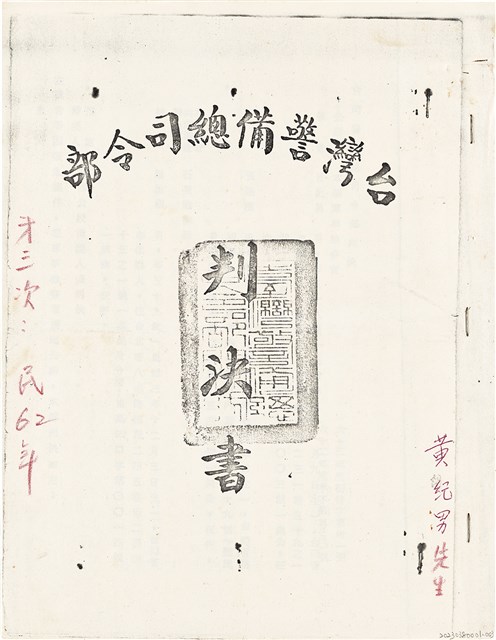 台灣警備總司令部
判決書
黃紀男先生
才三次：民62年